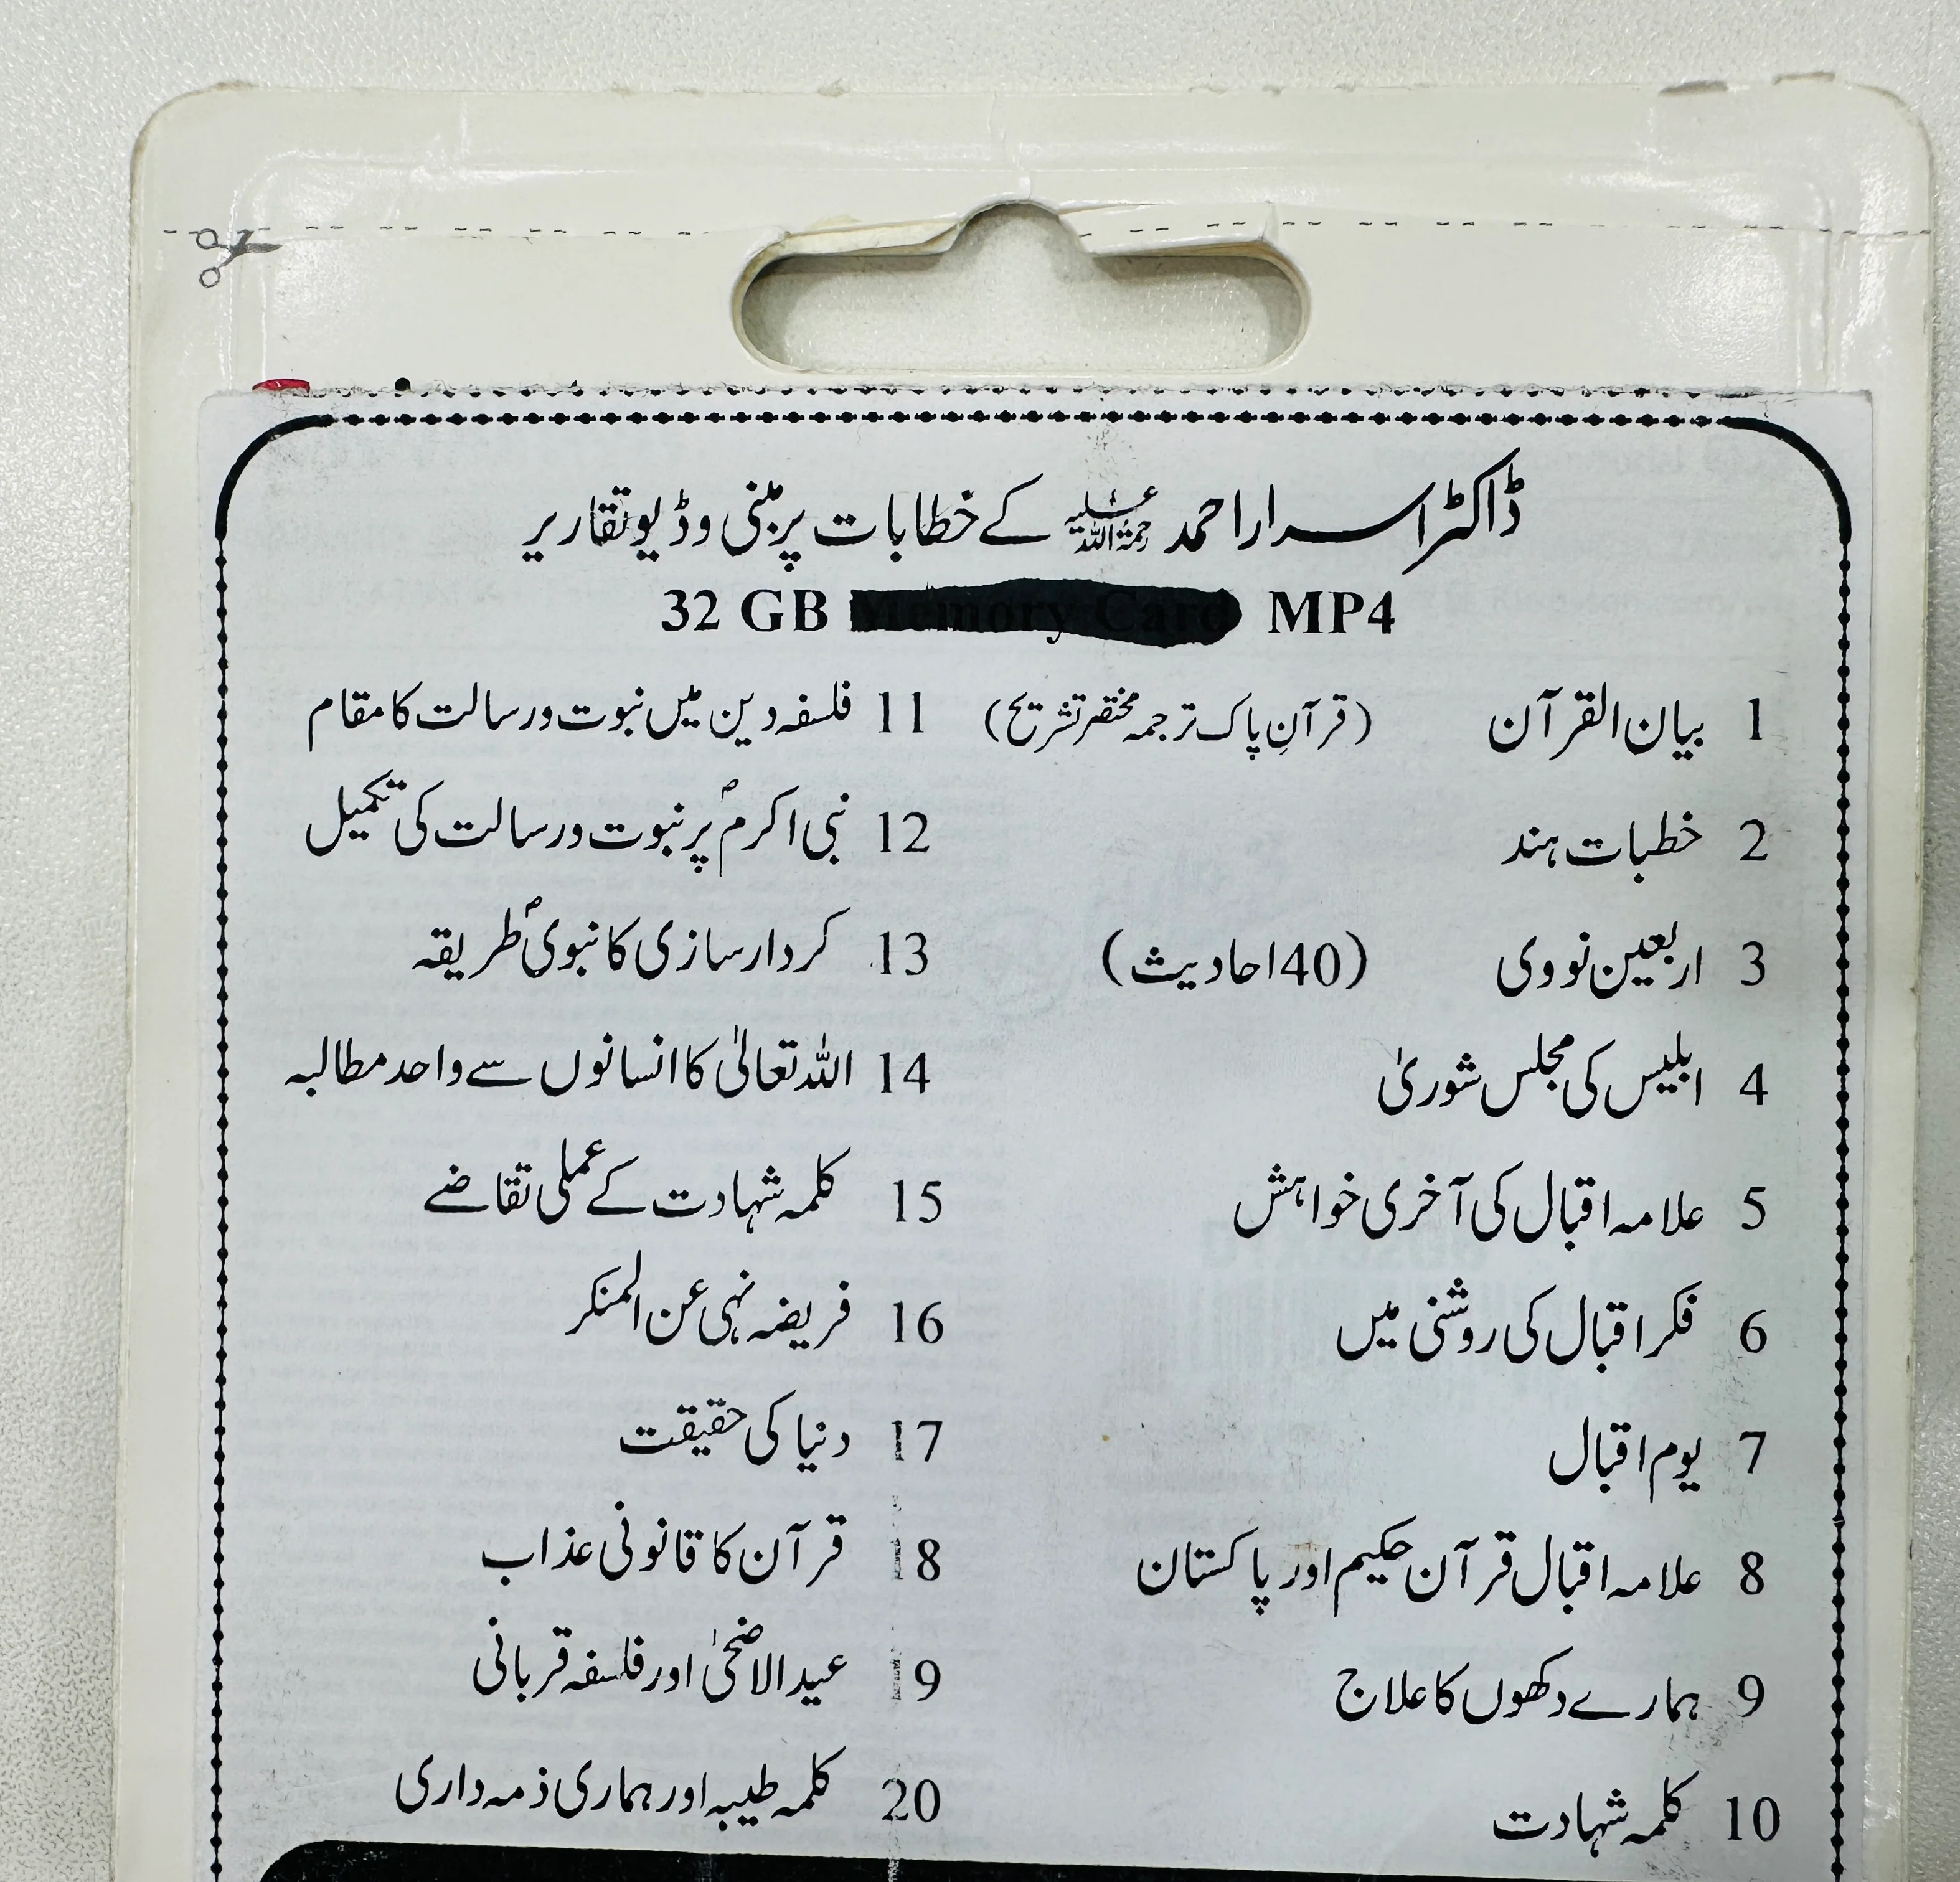 ڈاکٹر اسرار احمد رحمۃ اللہ علیہ کے خطابات پر مبنی وڈیو تقاریر
32 GB Memory Card MP4
1 بیان القرآن (قرآنِ پاک ترجمہ مختصر تشریح)
2 خطبات ہند
3 اربعین نووی (40 احادیث)
4 ابلیس کی مجلس شوریٰ
5 علامہ اقبال کی آخری خواہش
6 فکر اقبال کی روشنی میں
7 یوم اقبال
8 علامہ اقبال قرآن حکیم اور پاکستان
9 ہمارے دکھوں کا علاج
10 کلمہ شہادت
11 فلسفہ دین میں نبوت ورسالت کا مقام
12 نبی اکرمؐ پر نبوت ورسالت کی تکمیل
13 کردار سازی کا نبویؐ طریقہ
14 اللہ تعالیٰ کا انسانوں سے واحد مطالبہ
15 کلمہ شہادت کے عملی تقاضے
16 فریضہ نہی عن المنکر
17 دنیا کی حقیقت
18 قرآن کا قانونی عذاب
19 عید الاضحیٰ اور فلسفہ قربانی
20 کلمہ طیبہ اور ہماری ذمہ داری